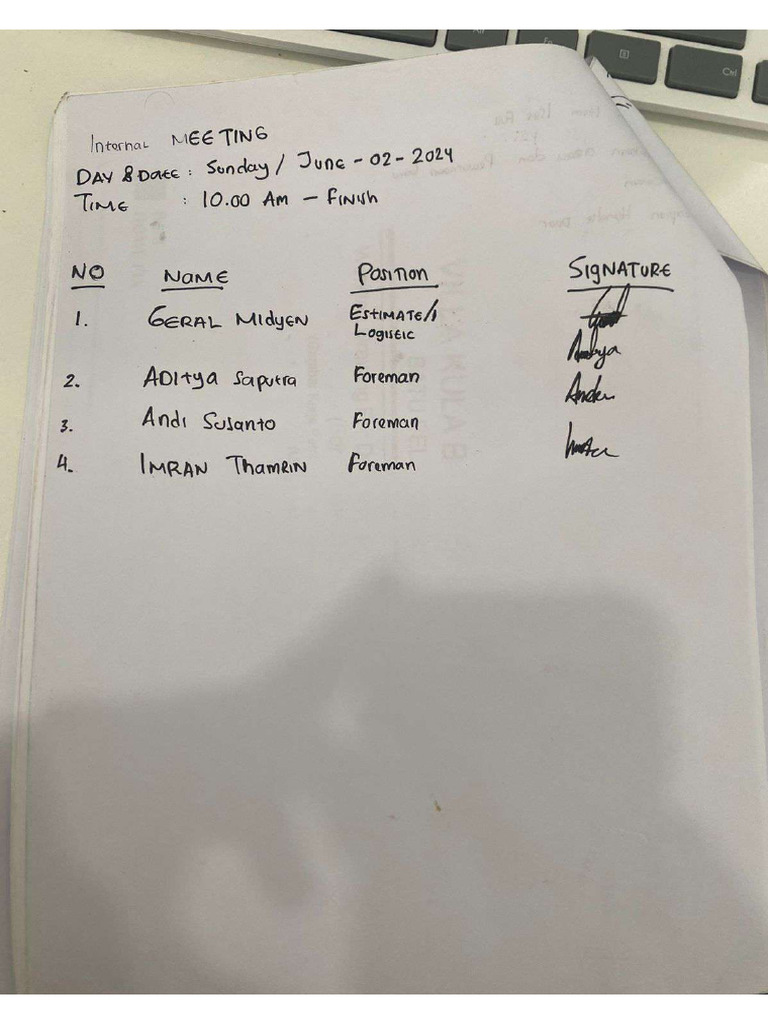 Internal MEETING
DAY & Date : Sunday / June - 02 - 2024
TIME : 10.00 Am - FINIsh
NO NAME POSITION SIGNATURE
1. GERAL MIdyEN ESTIMATE/
Logistic
2. ADITya Saputra Foreman
3. Andi Susanto Foreman
4. IMRAN ThamRIN Foreman
Ctrl